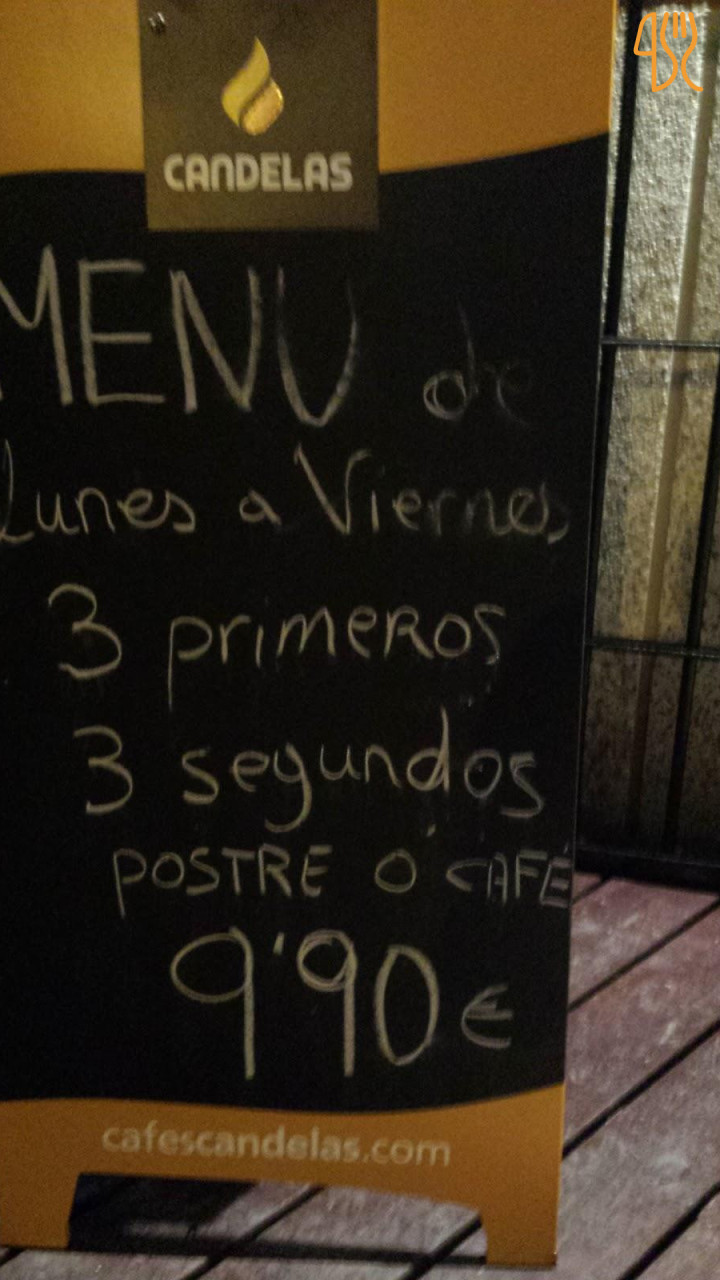 CANDELAS
MENU de
Lunes a Viernes
3 primeros
3 segundos
POSTRE Ó CAFÉ
9'90 €
cafescandelas.com